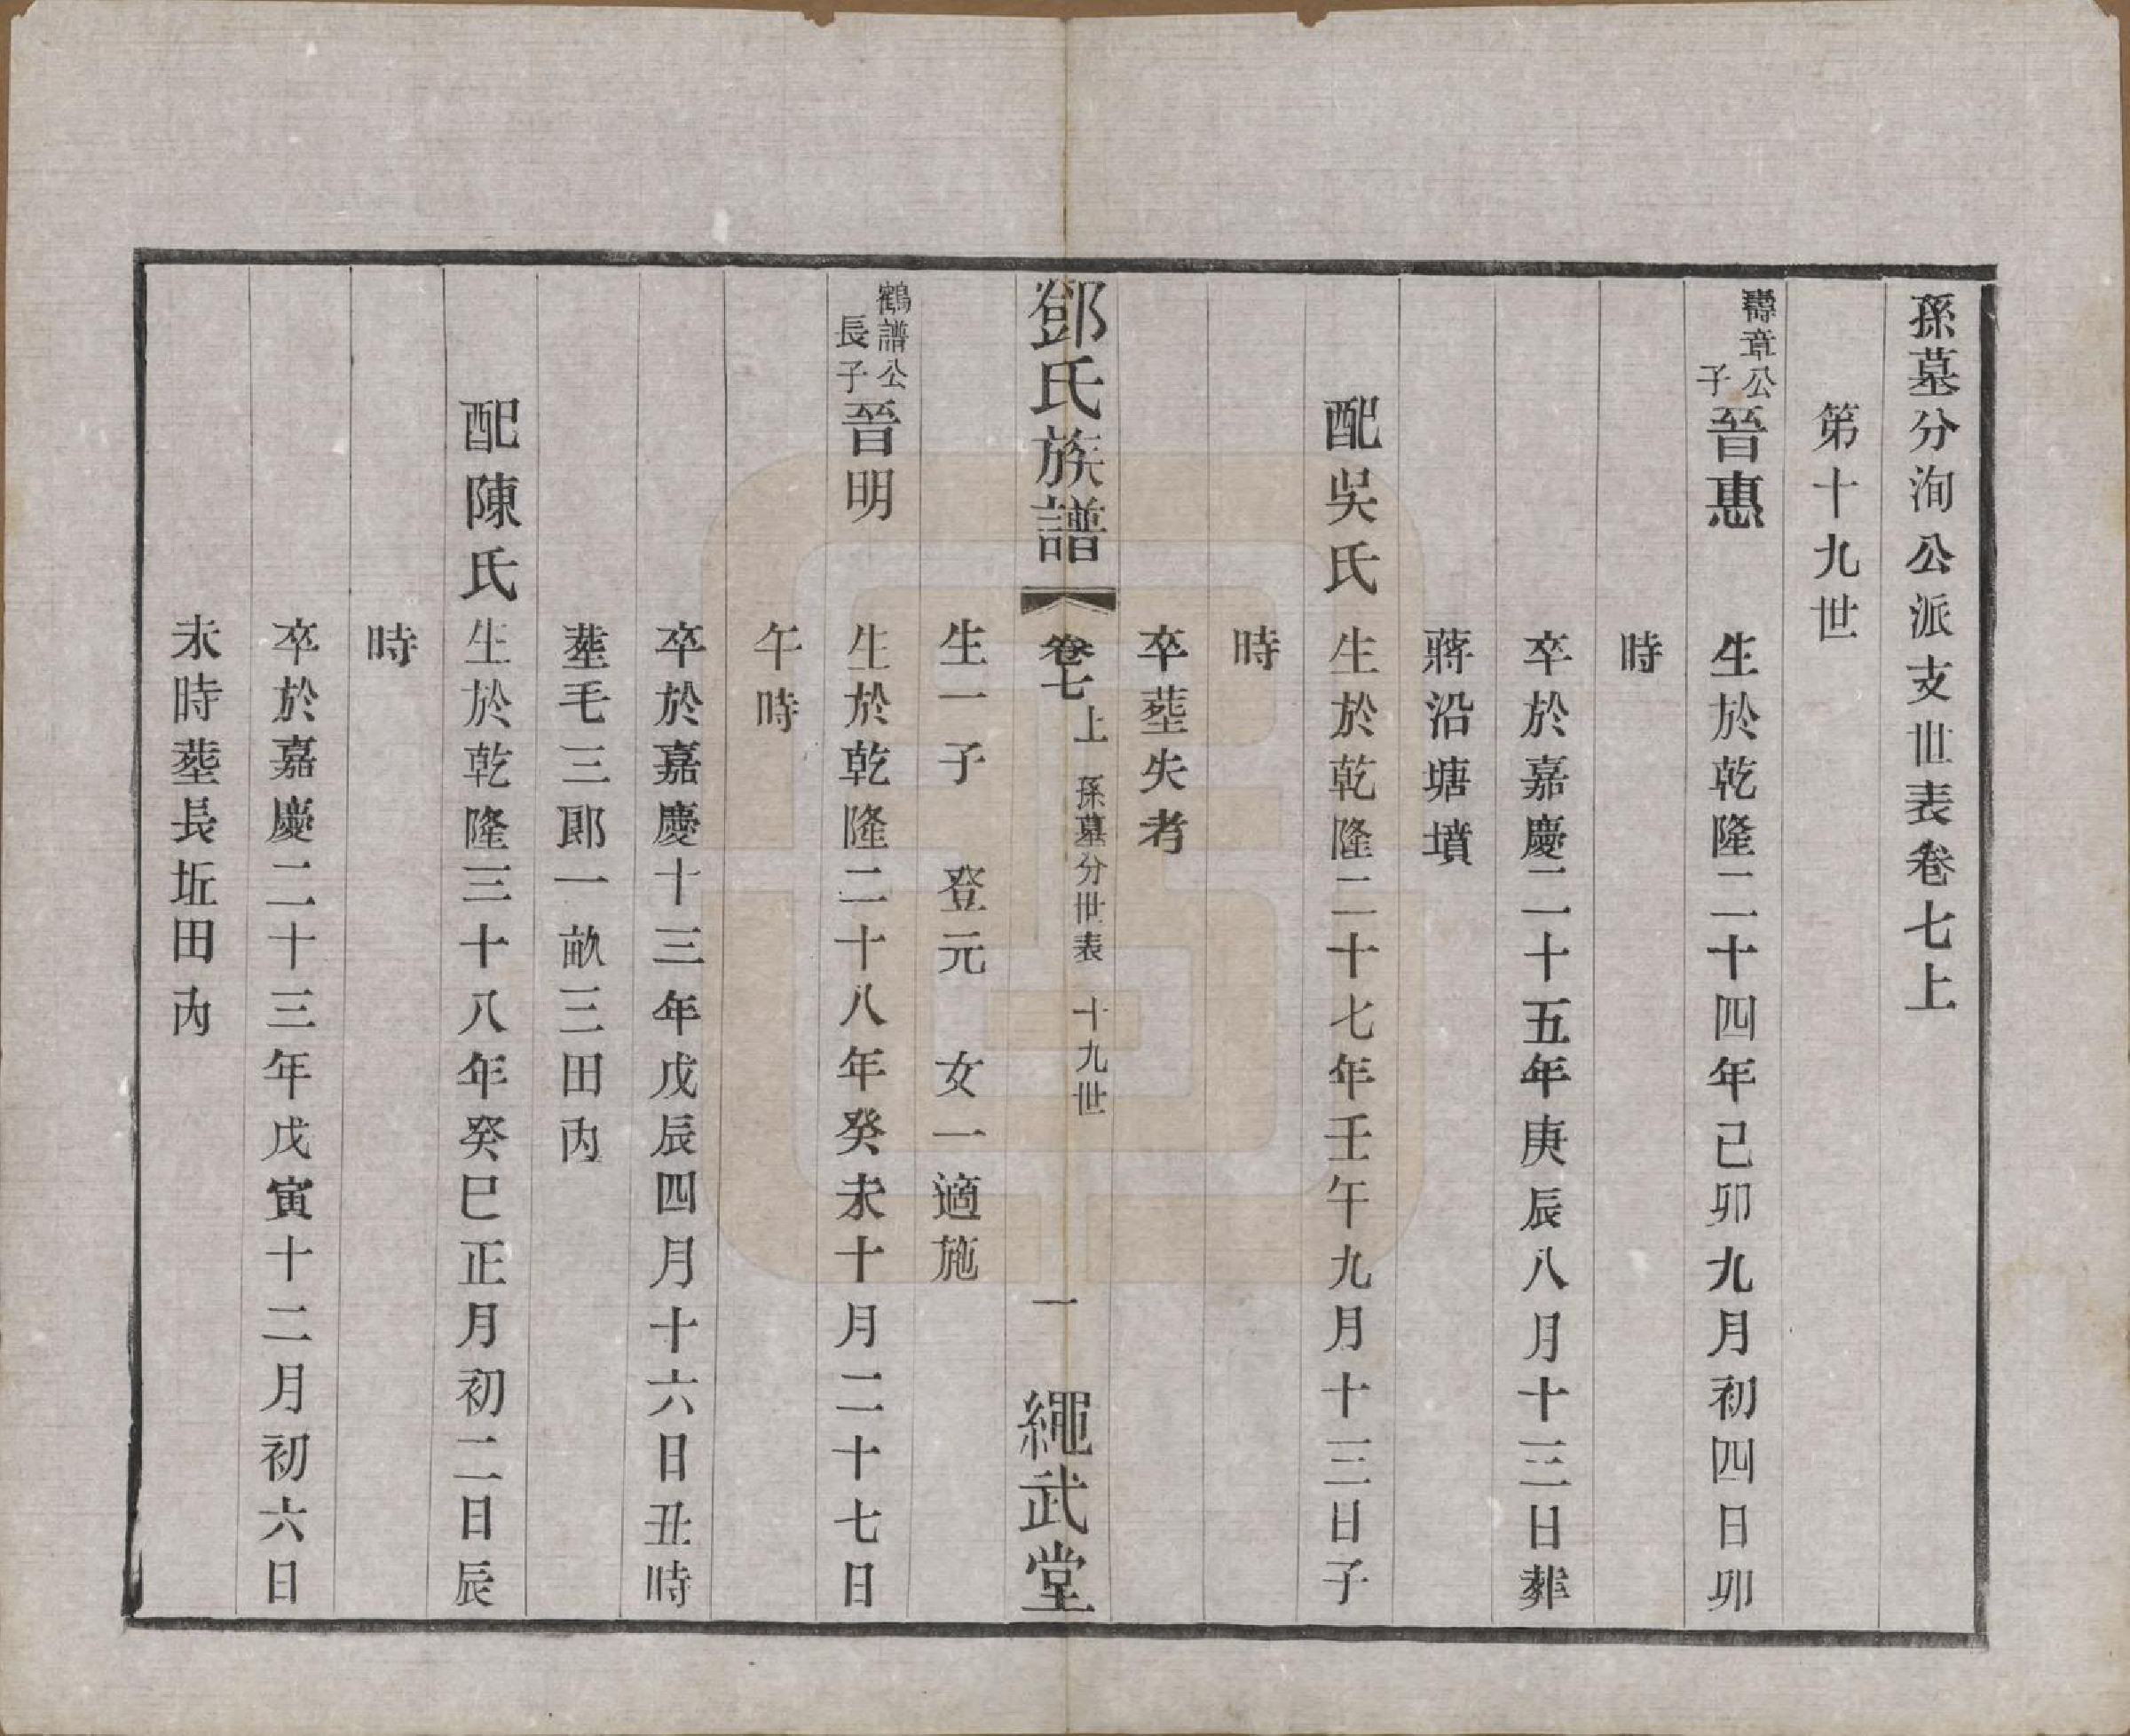 孫墓分洵公派支世表卷七上
第十九世
壽章公
子
晉惠
生於乾隆二十四年己卯九月初四日卯
時
卒於嘉慶二十五年庚辰八月十三日葬
蔣沿塘墳
配吳氏
生於乾隆二十七年壬午九月十三日子
時
卒塟失考
鄧氏族譜
卷七
上
孫墓分世表
十九世
一
繩武堂
生一子 登元 女一適施
鶴譜公
長子
晉明
生於乾隆二十八年癸未十月二十七日
午時
卒於嘉慶十三年戊辰四月十六日丑時
塟毛三郞一畝三田內
配陳氏
生於乾隆三十八年癸巳正月初二日辰
時
卒於嘉慶二十三年戊寅十二月初六日
未時塟長坵田內